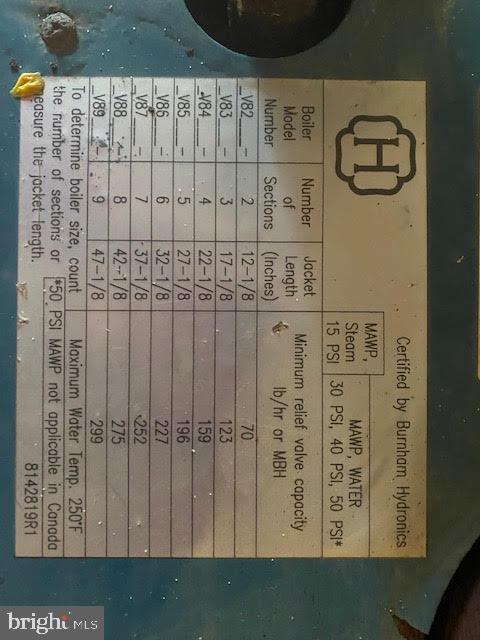 H
Certified by Burnham Hydronics
MAWP, Steam 15 PSI
MAWP, WATER 30 PSI, 40 PSI, 50 PSI*
Boiler Model Number
Number of Sections
Jacket Length (Inches)
Minimum relief valve capacity lb/hr or MBH
_V82___- 2 12-1/8 70
_V83___- 3 17-1/8 123
_V84___- 4 22-1/8 159
_V85___- 5 27-1/8 196
_V86___- 6 32-1/8 227
_V87___- 7 37-1/8 252
_V88___- 8 42-1/8 275
_V89___- 9 47-1/8 299
To determine boiler size, count
the number of sections or
measure the jacket length.
Maximum Water Temp. 250°F
*50 PSI MAWP not applicable in Canada
8142819R1
bright MLS